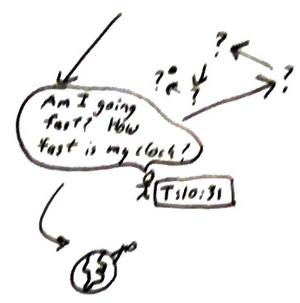 ?
? ?
?
Am I going
fast? How
fast is my clock?
T=10:31